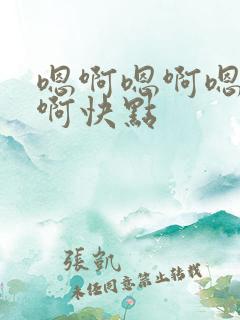 嗯啊嗯啊嗯
啊快點
張凱
未任同意禁止轉載